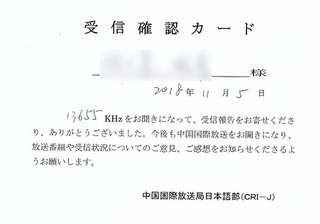 受信確認カード
様
2018年 11月 5日
13655 KHzをお聞きになって、受信報告をお寄せくださ
り、ありがとうございました。今後も中国国際放送をお聞きになり、
放送番組や受信状況についてのご意見、ご感想をお知らせくださるよ
うお願いします。
中国国際放送局日本語部(CRI-J)